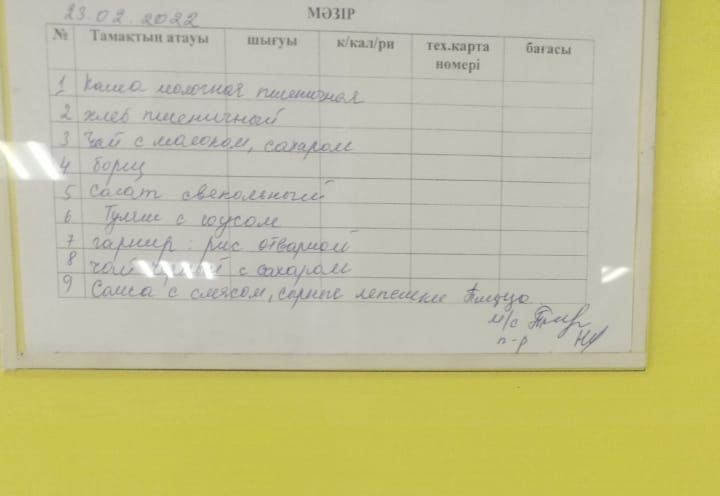 23.02.2022
МӘЗІР
№ Тамақтың атауы шығуы к/кал/ри тех.карта нөмері бағасы
1 Каша молочная пшеничная
2 хлеб пшеничный
3 Чай с маслом, сахаром
4 борщ
5 Салат свекольный
6 Гуляш с соусом
7 гарнир: рис отварной
8 чай с сахаром
9 Самса с мясом, сырные лепешки Пицца
м/с
п-р